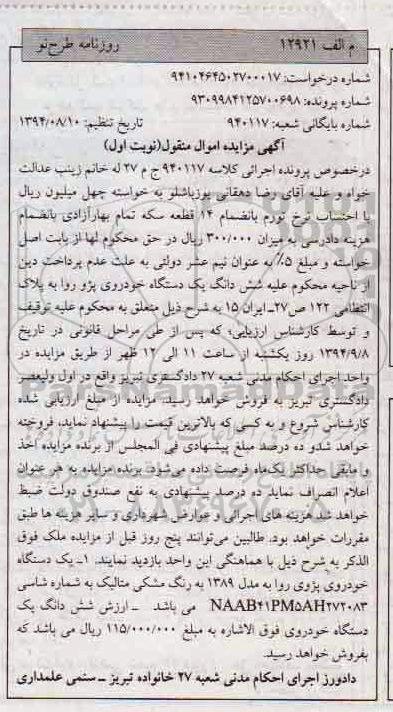 م الف ۱۲۹۲۱ روزنامه طرح‌نو
شماره درخواست: ۹۴۱۰۴۶۴۵۰۲۷۰۰۰۱۷
شماره پرونده: ۹۳۰۹۹۸۴۱۲۵۷۰۰۶۹۸
شماره بایگانی شعبه: ۹۴۰۱۱۷ تاریخ تنظیم: ۱۳۹۴/۰۸/۱۰
آگهی مزایده اموال منقول(نوبت اول)
درخصوص پرونده اجرائی کلاسه ۹۴۰۱۱۷ ج م ۲۷ له خانم زینب عدالت
خواه و علیه آقای رضا دهقانی یوزباشلو به خواسته چهل میلیون ریال
با احتساب نرخ تورم بانضمام ۱۴ قطعه سکه تمام بهارآزادی بانضمام
هزینه دادرسی به میزان ۳۰۰/۰۰۰ ریال در حق محکوم لها از بابت اصل
خواسته و مبلغ ۵٪ به عنوان نیم عشر دولتی به علت عدم پرداخت دین
از ناحیه محکوم علیه شش دانگ یک دستگاه خودروی پژو روا به پلاک
انتظامی ۱۲۲ ص۲۷ـ ایران ۱۵ به شرح ذیل متعلق به محکوم علیه توقیف
و توسط کارشناس ارزیابی؛ که پس از طی مراحل قانونی در تاریخ
۱۳۹۴/۹/۸ روز یکشنبه از ساعت ۱۱ الی ۱۲ ظهر از طریق مزایده در
واحد اجرای احکام مدنی شعبه ۲۷ دادگستری تبریز واقع در اول ولیعصر
دادگستری تبریز به فروش خواهد رسید. مزایده از مبلغ ارزیابی شده
کارشناس شروع و به کسی که بالاترین قیمت را پیشنهاد نماید، فروخته
خواهد شدو ده درصد مبلغ پیشنهادی فی المجلس از برنده مزایده اخذ
و مابقی حداکثر یک‌ماه فرصت داده می‌شود. برنده مزایده به هر عنوان
اعلام انصراف نماید ده درصد پیشنهادی به نفع صندوق دولت ضبط
خواهد شد هزینه های اجرائی و عوارض شهرداری و سایر هزینه ها طبق
مقررات خواهد بود. طالبین می‌توانند پنج روز قبل از مزایده ملک فوق
الذکر به شرح ذیل با هماهنگی این واحد بازدید نمایند. ۱ـ یک دستگاه
خودروی پژوی روا به مدل ۱۳۸۹ به رنگ مشکی متالیک به شماره شاسی
NAAB۴۱PM۵AH۲۷۲۰۸۳ می باشد ـ ارزش شش دانگ یک
دستگاه خودروی فوق الاشاره به مبلغ ۱۱۵/۰۰۰/۰۰۰ ریال می باشد که
بفروش خواهد رسید.
دادورز اجرای احکام مدنی شعبه ۲۷ خانواده تبریز ـ سنمی علمداری